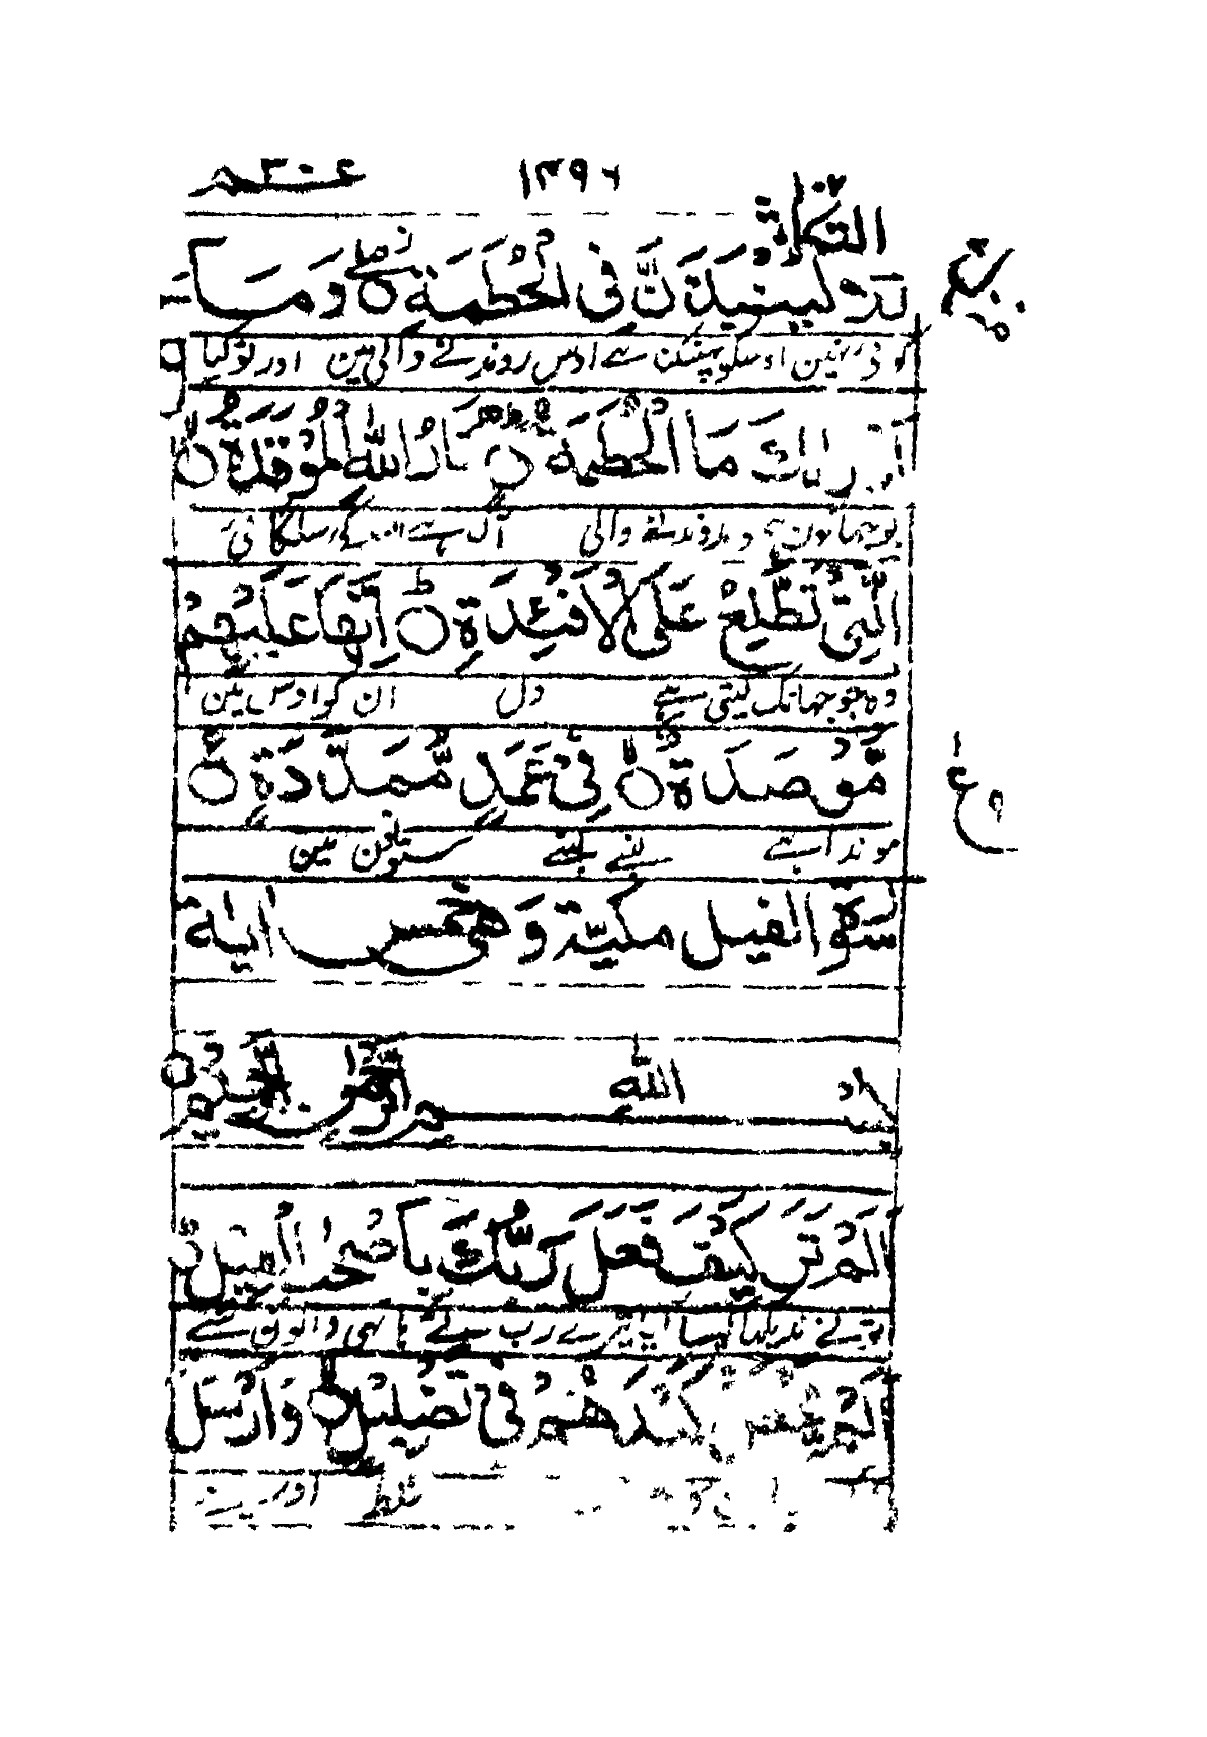 عم ٣٠
كَلَّا لَيُنْبَذَنَّ فِي الْحُطَمَةِ ○ وَمَا
کوئی نہین اوسکو پھینکنا ہے اوس روندنے والی مین اور تو کیا
أَدْرَاكَ مَا الْحُطَمَةُ ○ نَارُ اللَّهِ الْمُوقَدَةُ ○
بوجھا کون ہے وہ روندنے والی آگ ہے اللہ کی سلگائی
الَّتِي تَطَّلِعُ عَلَى الْأَفْئِدَةِ ○ إِنَّهَا عَلَيْهِمْ
وہ جو جھانک لیتی ہے دل ان کو اوس مین
مُّؤْصَدَةٌ ○ فِي عَمَدٍ مُّمَدَّدَةٍ ○
موندا ہے لنبے لنبے ستونون مین
سورة الفيل مكية وهي خمس اية
بسم الله الرحمن الرحيم ○
أَلَمْ تَرَ كَيْفَ فَعَلَ رَبُّكَ بِأَصْحٰبِ الْفِيلِ
تونے ندیکھا کیسا کیا تیرے رب نے ہاتھی والون سے
أَلَمْ يَجْعَلْ كَيْدَهُمْ فِي تَضْلِيلٍ ○ وَأَرْسَلَ
غلط اور بھیجے